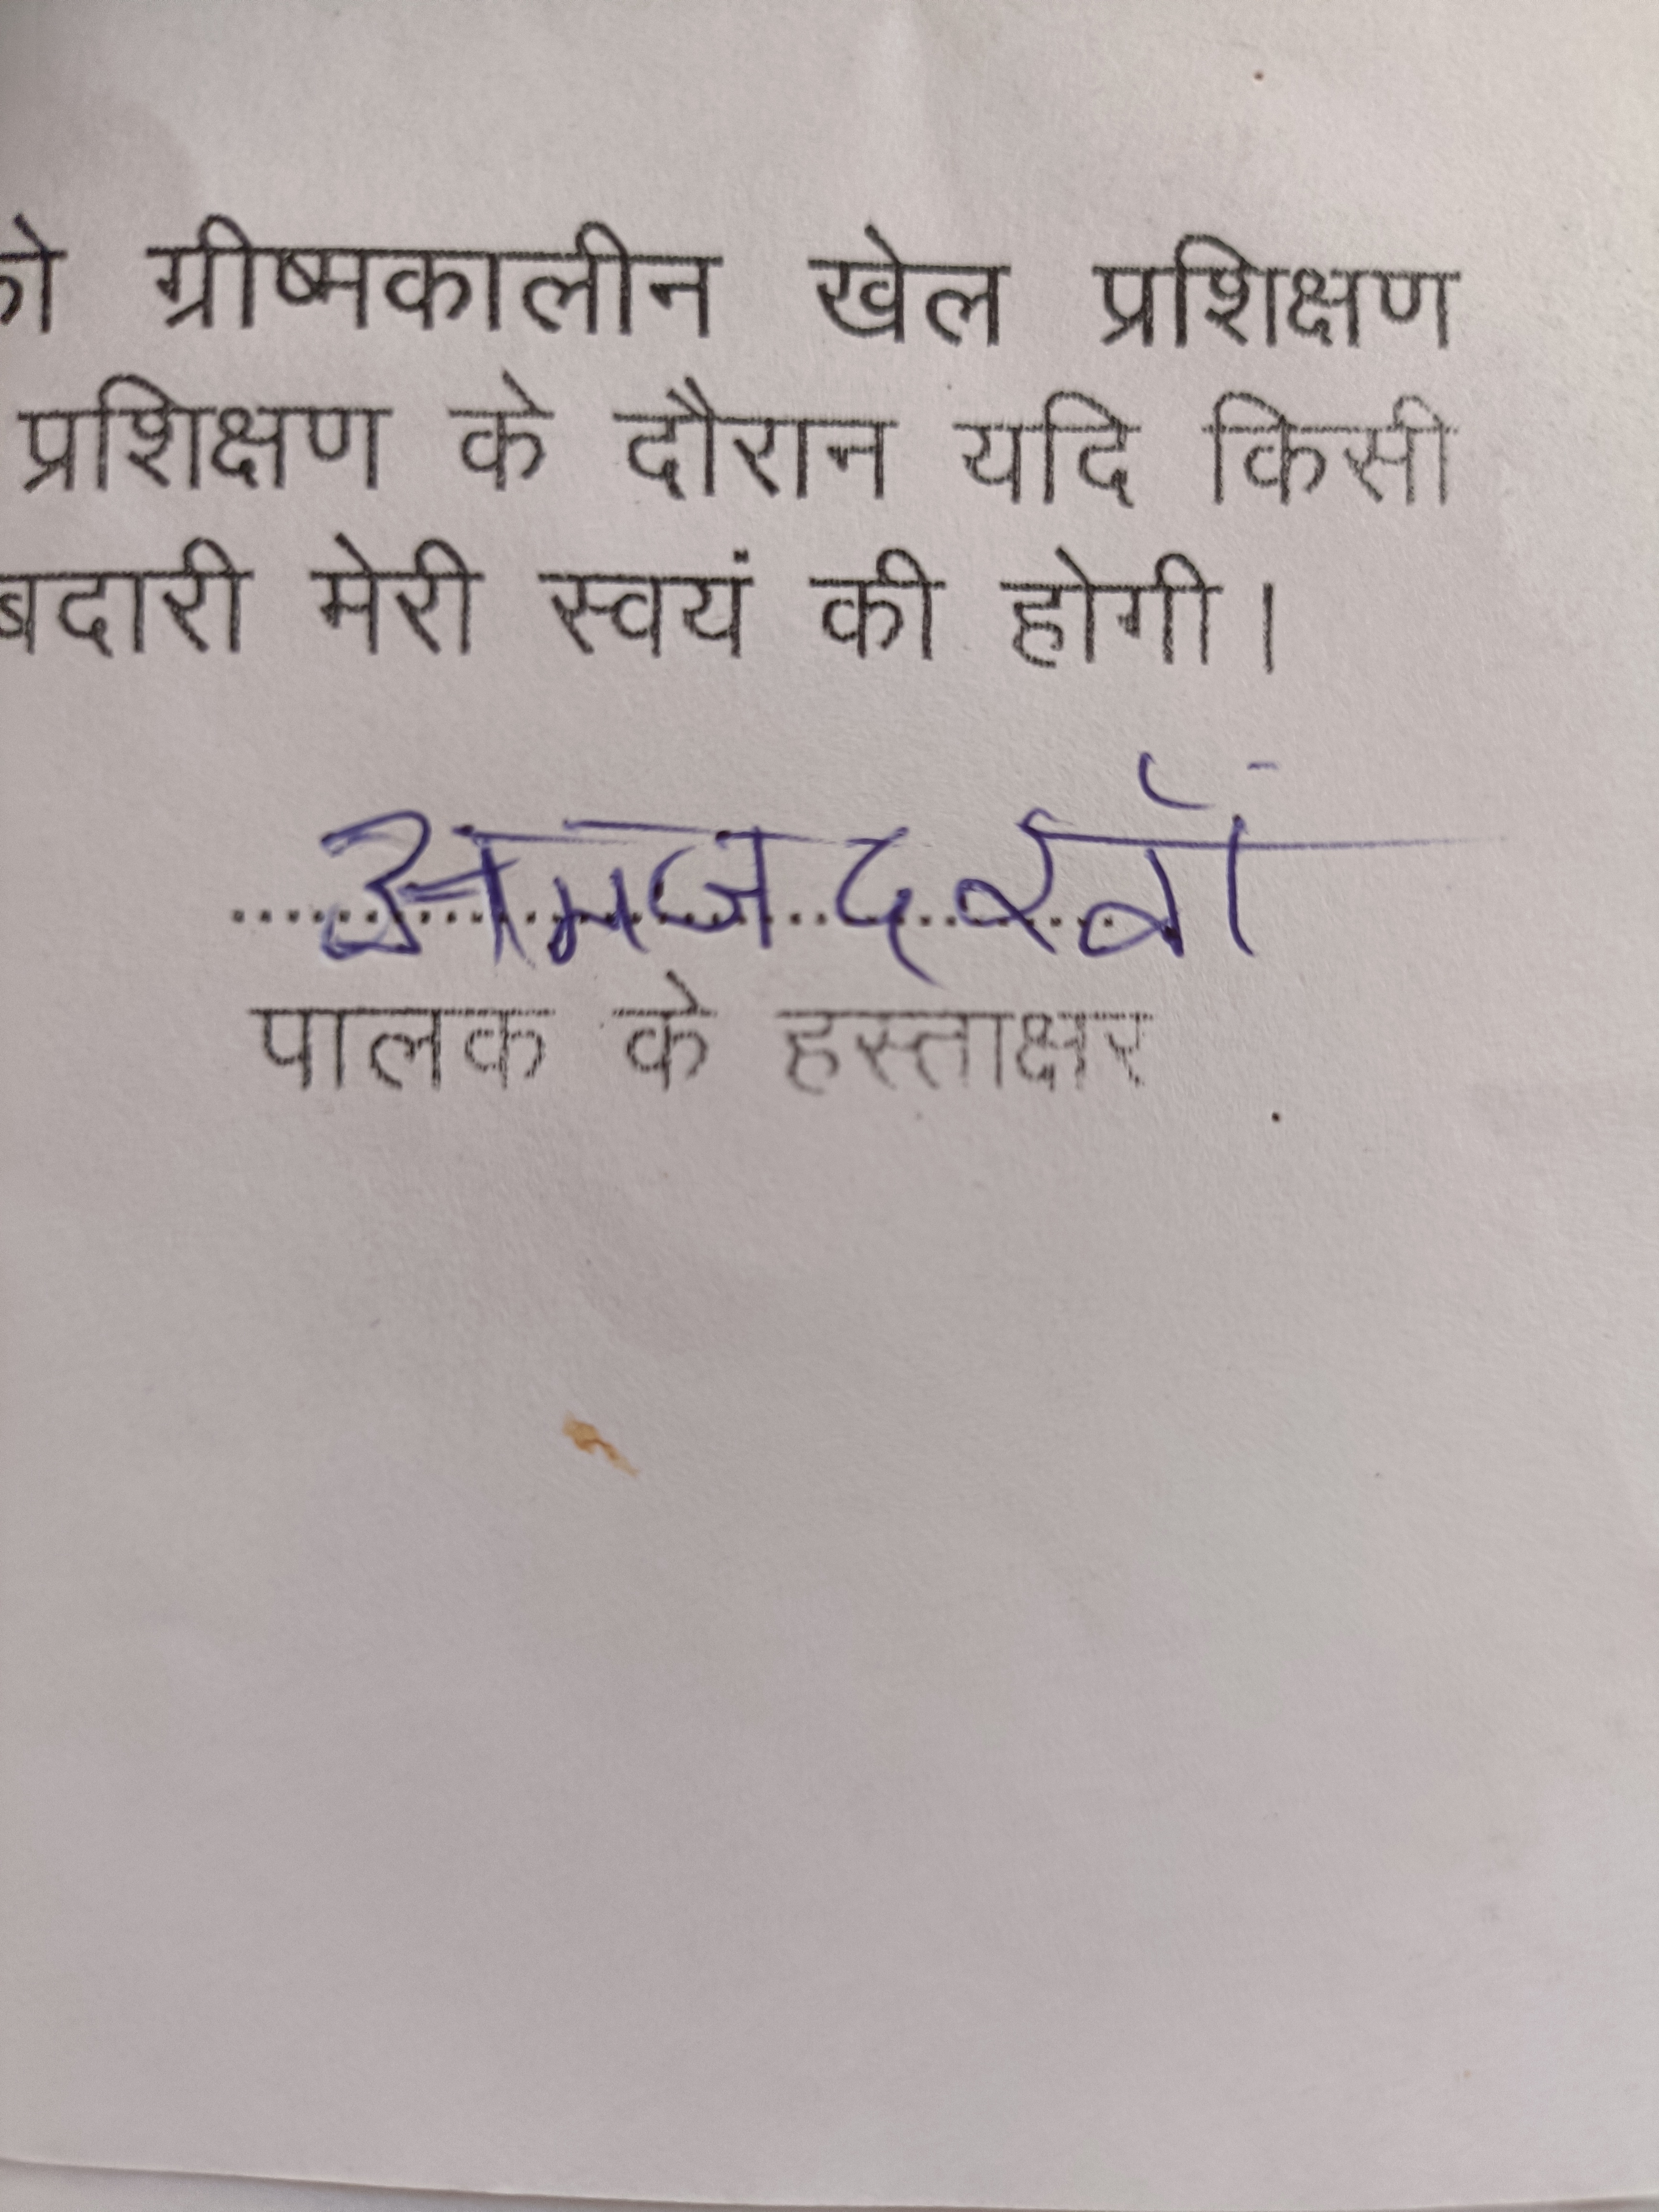 को ग्रीष्मकालीन खेल प्रशिक्षण
प्रशिक्षण के दौरान यदि किसी
बदारी मेरी स्वयं की होगी।
अमजद खाँ
पालक के हस्ताक्षर